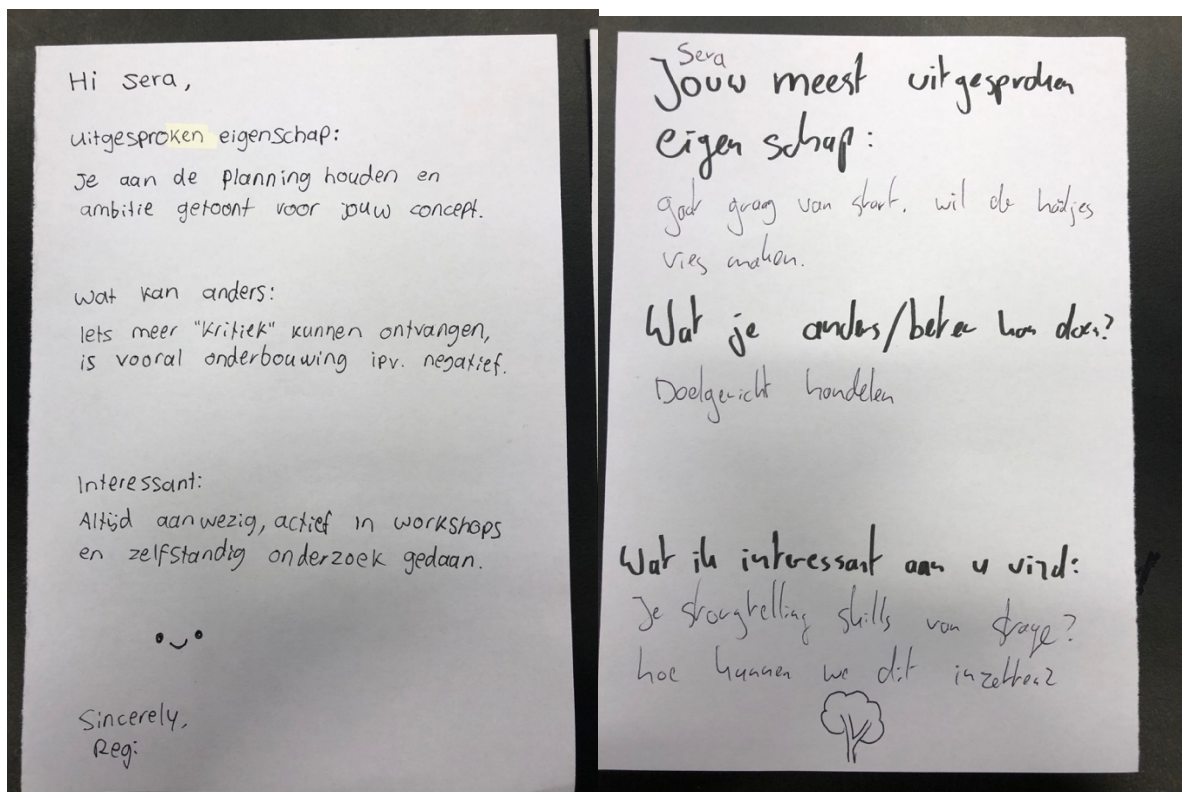 Hi Sera,
uitgesproken eigenschap:
Je aan de planning houden en
ambitie getoont voor jouw concept.
Wat kan anders:
Iets meer "kritiek" kunnen ontvangen,
is vooral onderbouwing ipv. negatief.
Interessant:
Altijd aanwezig, actief in workshops
en zelfstandig onderzoek gedaan.
Sincerely,
Regi
Sera
Jouw meest uitgesproken
eigenschap:
gaat graag van start. wil de handjes
vies maken.
Wat je anders/beter kan doen?
Doelgericht handelen
Wat ik interessant aan u vind:
Je storytelling skills van stage?
hoe kunnen we dit inzetten?